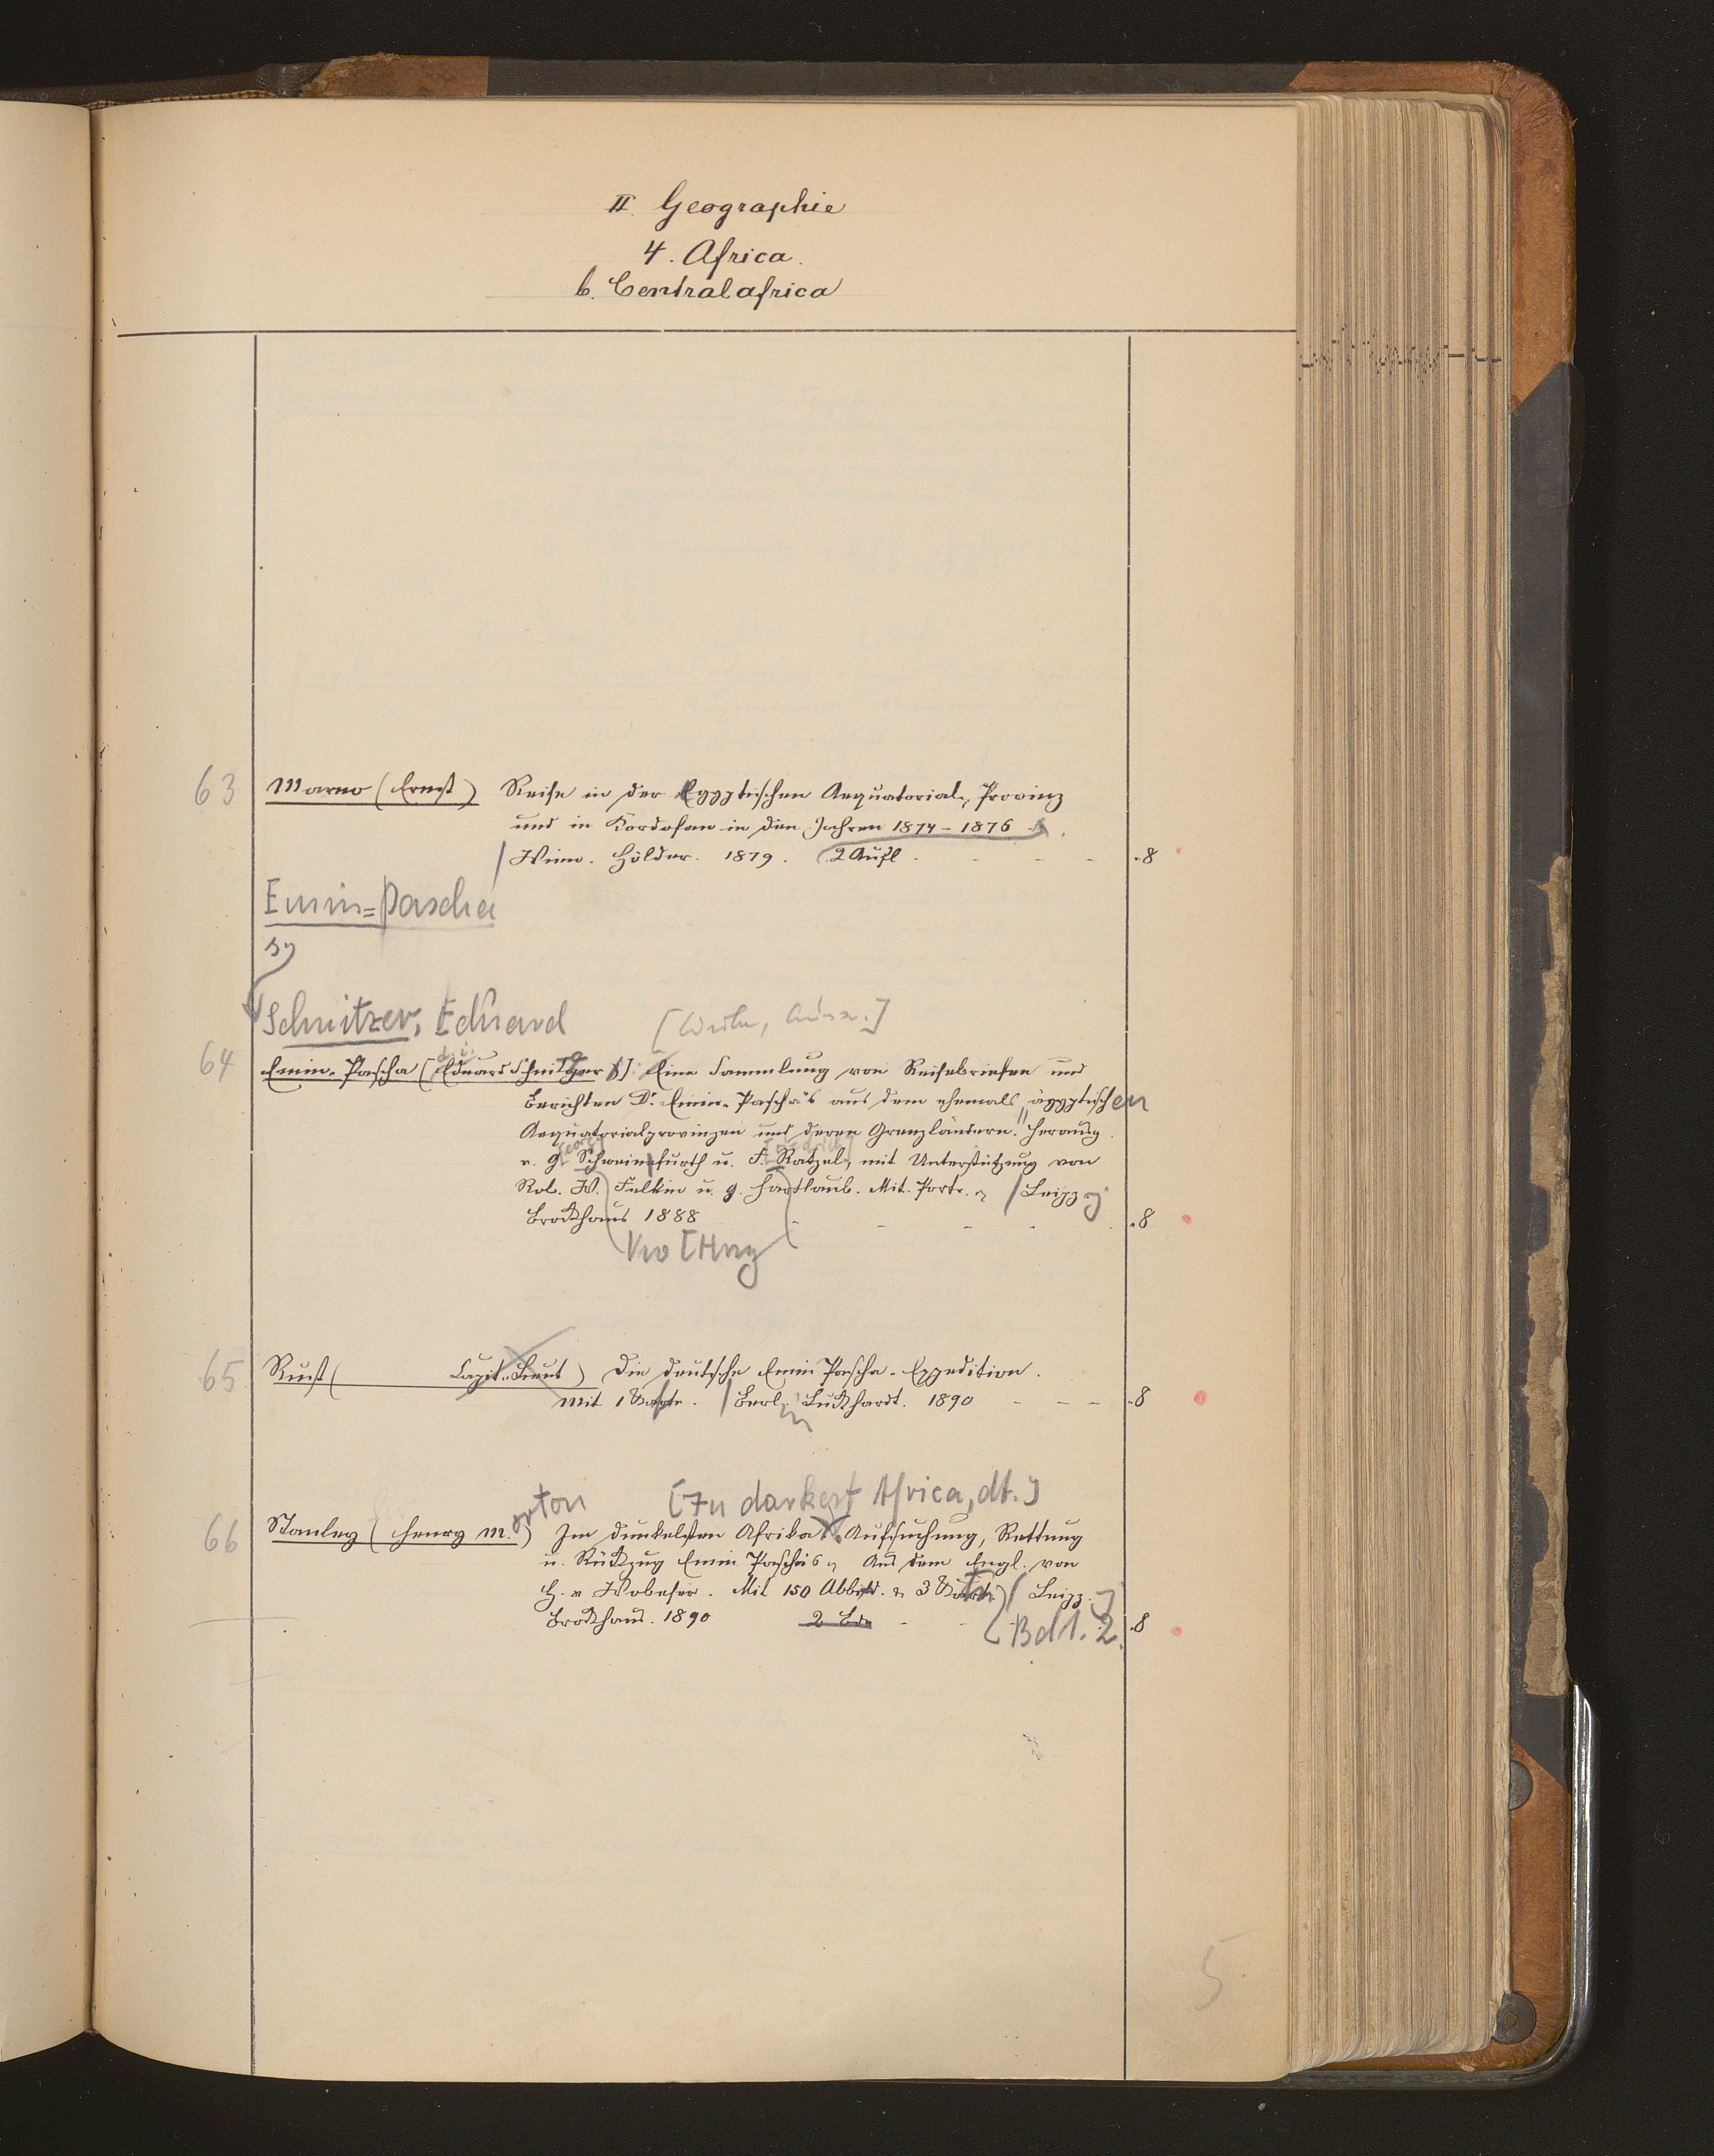 II. Geographie
4. Africa.
b. Centralafrica
63 Marno (Ernst) Reise in der Egyptischen Aequatorial-Provinz
und in Kordofan in den Jahren 1874-1876.
Wien. Hölder. 1879. 2 Aufl. 8
Emin=Pascha
Schnitzer, Eduard [Werke, Ausz.]
64 Emin-Pascha [d. i. Eduard Schnitzer]: Eine Sammlung von Reisebriefen und
Berichten Dr. Emin-Pascha's aus dem ehemals ägyptischen
Aequatorialprovinzen und deren Grenzländern. Herausg.
v. G. Schweinfurth u. F. Ratzel, mit Unterstützung von
Rob. W. Felkin u. G. Hartlaub. Mit. Portr. Leipzg
Brockhaus 1888 8
65 Rust ( Capit.-Lieut) Die deutsche Emin Pascha-Expedition.
Mit 1 Karte. Berlin Luckhardt. 1890 8
[In darkest Africa, dt.]
66 Stanley (Henry M.orton) Im dunkelsten Afrika. Aufsuchung, Rettung
u. Rückzug Emin Pascha's Aus dem Engl. von
H. v Wobeser. Mit 150 Abbild. 3 Karten) Leipz. g
Brockhaus. 1890 2 Bde (Bd 1. 2. 8
5